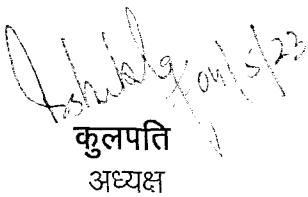 04/5/22
कुलपति
अध्यक्ष